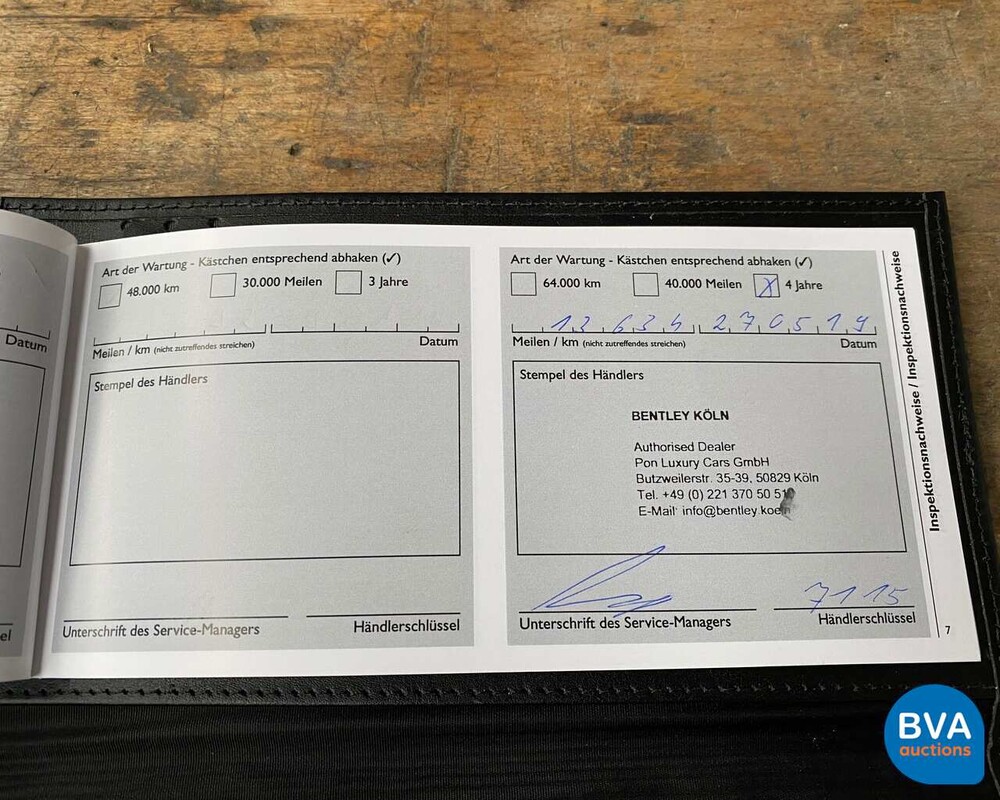 Datum
el
Art der Wartung - Kästchen entsprechend abhaken (✓)
48.000 km 30.000 Meilen 3 Jahre
Meilen / km (nicht zutreffendes streichen) Datum
Stempel des Händlers
Unterschrift des Service-Managers Händlerschlüssel
Art der Wartung - Kästchen entsprechend abhaken (✓)
64.000 km 40.000 Meilen X 4 Jahre
13634 270519
Meilen / km (nicht zutreffendes streichen) Datum
Stempel des Händlers
BENTLEY KÖLN
Authorised Dealer
Pon Luxury Cars GmbH
Butzweilerstr. 35-39, 50829 Köln
Tel. +49 (0) 221 370 50
E-Mail: info@bentley.koeln
7115
Unterschrift des Service-Managers Händlerschlüssel
Inspektionsnachweise / Inspektionsnachweise
7
BVA
auctions